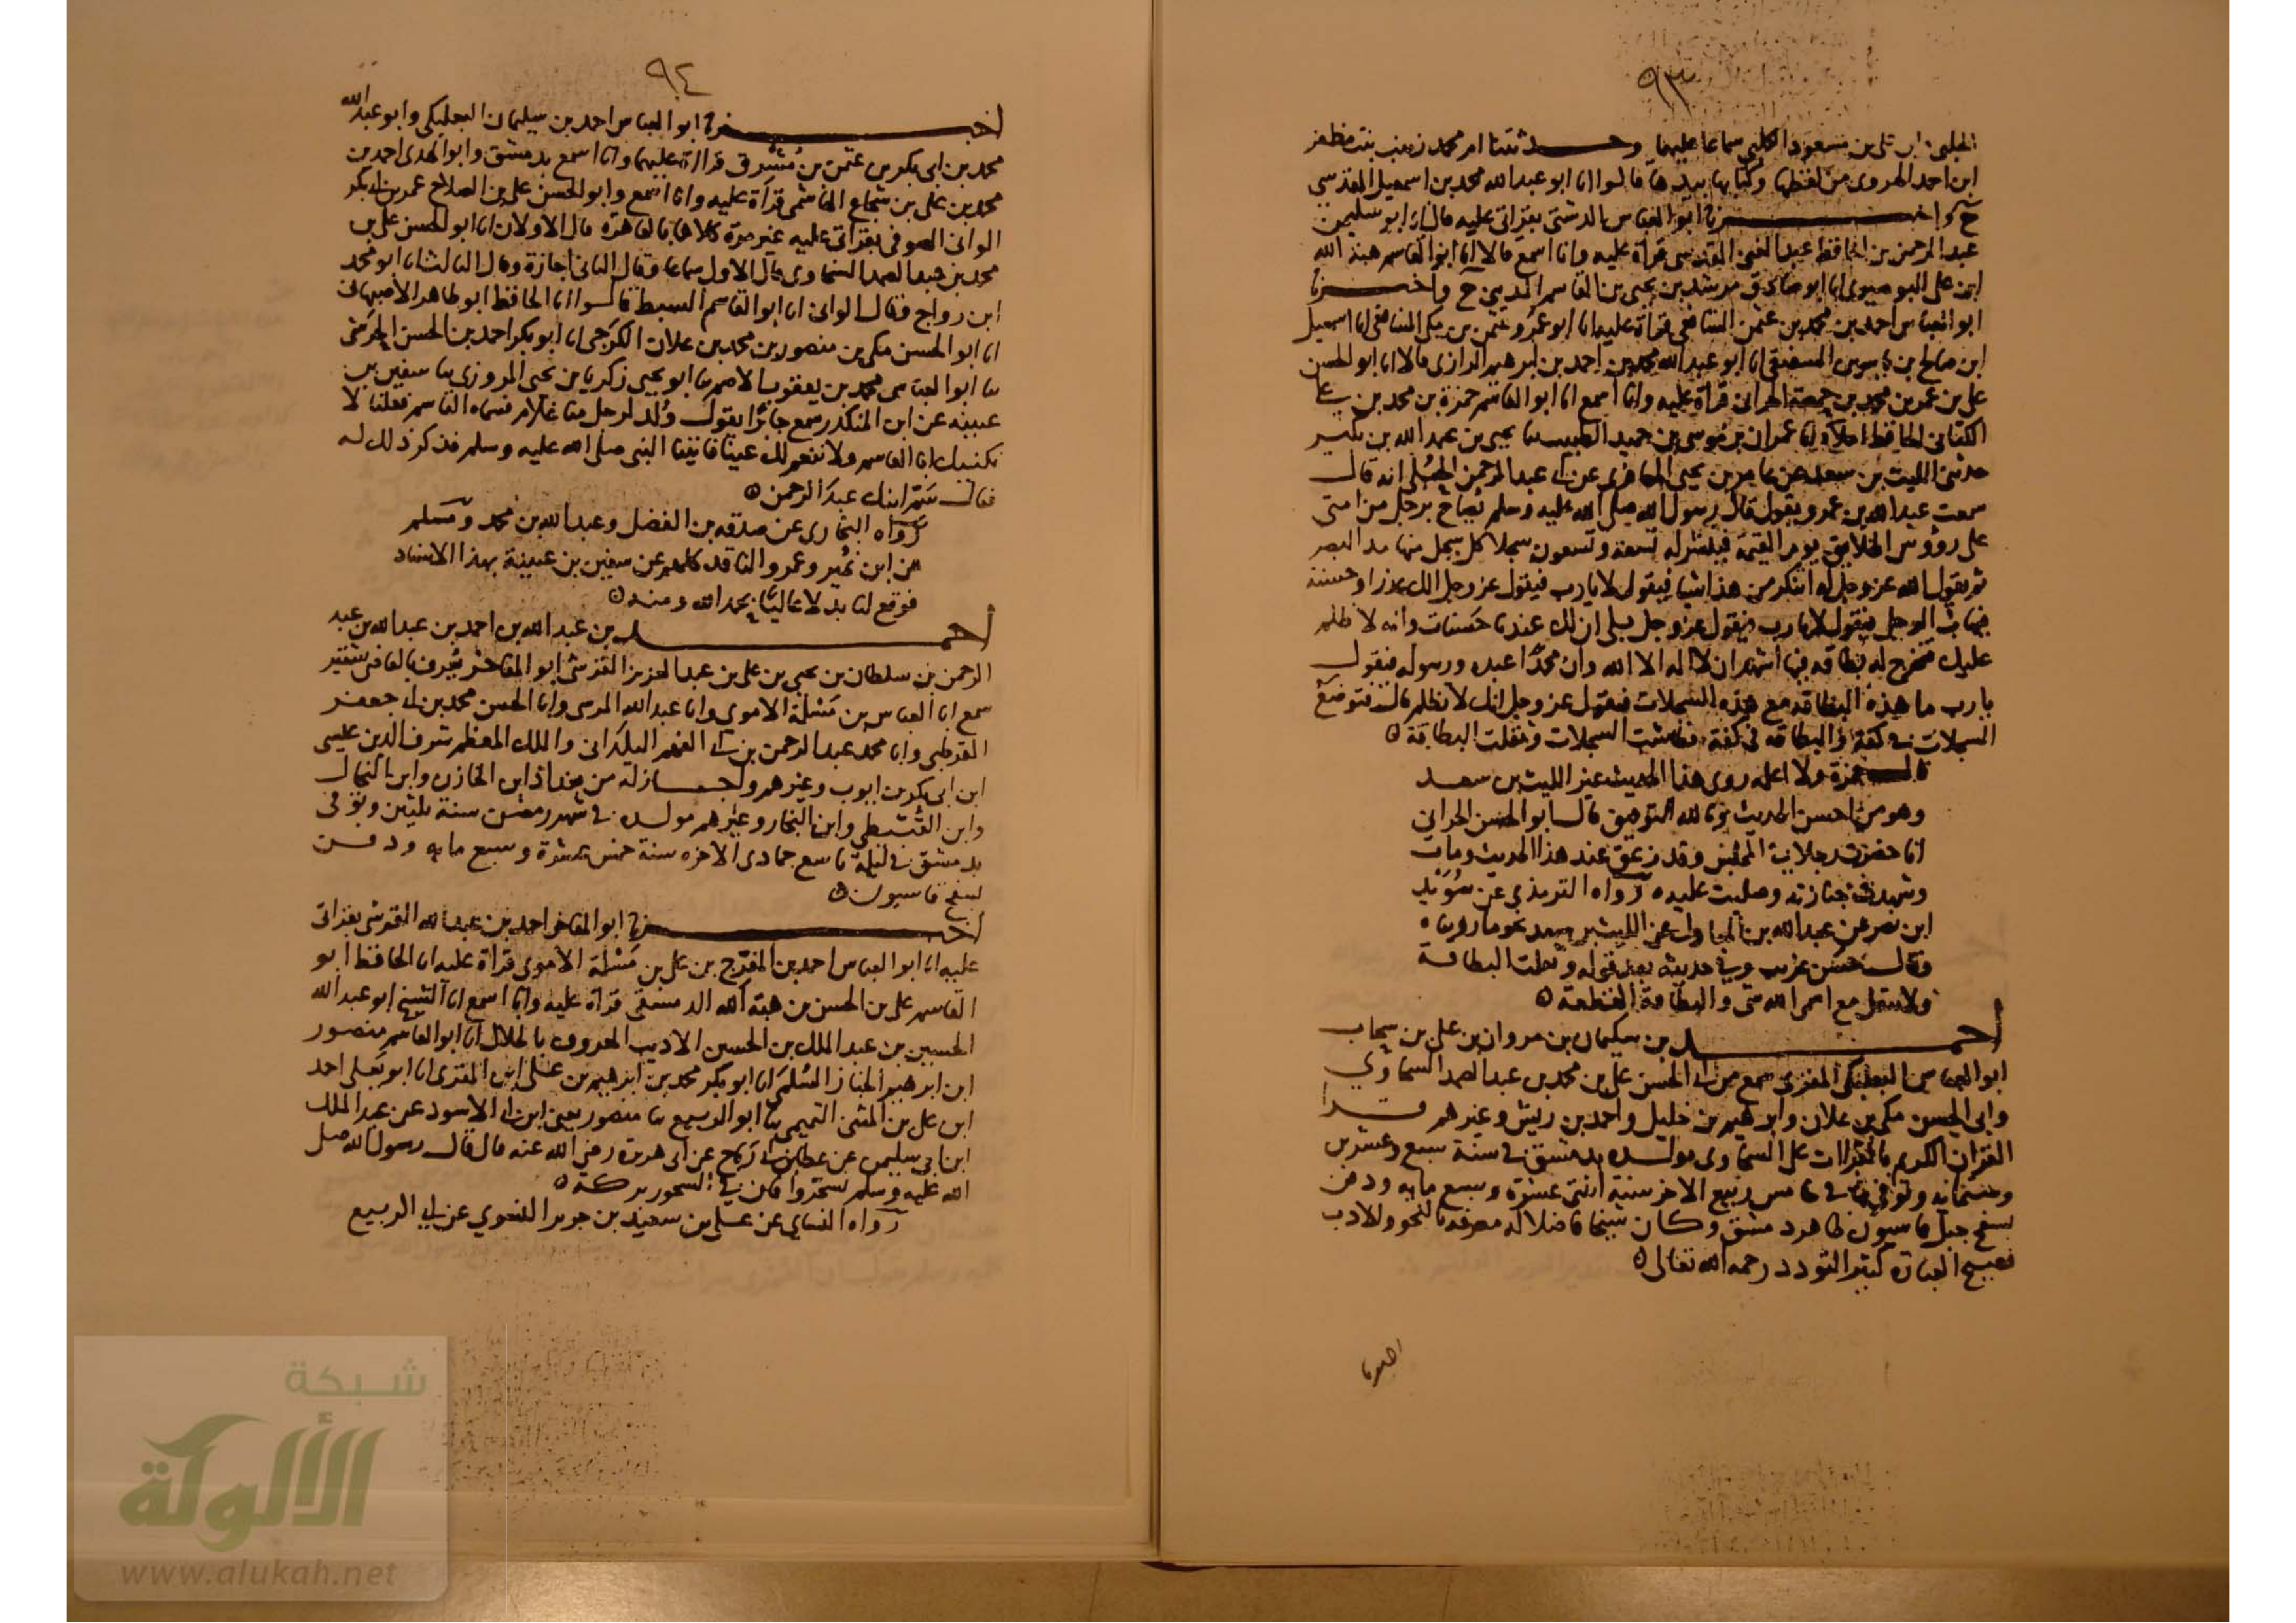 ٩٣
الحلبي ابن علي بن مسعود الكلبي سماعا عليهما وحدثتنا ام محمد زينب بنت مظفر
ابن احمد الهروى من لفظها وكتابها بيدها قالوا انا ابو عبد الله محمد بن اسمعيل المقدسي
ح واخبرنا ابو العباس الدشتى بقراتى عليه قال انا ابو سليمن
عبد الرحمن بن الحافظ عبد الغنى المقدسى قراة عليه وانا اسمع قالا انا ابو القاسم هبة الله
ابن على البوصيرى انا ابو صادق مرشد بن يحيى بن القاسم المدينى ح واخبرنا
ابو العباس احمد بن محمد بن عثمن الشافعى قراة عليه انا ابو عمرو عثمن بن مكى الشافعى انا اسمعيل
ابن صالح بن ياسين الشفيقى انا ابو عبد الله محمد بن احمد بن ابرهيم الرازى قالا انا ابو الحسن
على بن عمر بن محمد بن حمصة الحرانى قراة عليه وانا اسمع انا ابو القاسم حمزة بن محمد بن على
الكنانى الحافظ املاء انا عمران بن موسى بن حميد الطبيب نا يحيى بن عبد الله بن بكير
حدثنى الليث بن سعد عن عامر بن يحيى المعافرى عن ابى عبد الرحمن الحبلى انه قال
سمعت عبد الله بن عمرو يقول قال رسول الله صلى الله عليه وسلم يصاح برجل من امتى
على رؤوس الخلايق يوم القيمة فينشر له تسعة وتسعون سجلا كل سجل منها مد البصر
ثم يقول الله عز وجل له اتنكر من هذا شيا فيقول لا يارب فيقول عز وجل الك عذر او حسنة
فيهاب الرجل فيقول لا يارب فيقول عز وجل بلى ان لك عندنا حسنات وانه لا ظلم
عليك فتخرج له بطاقة فيها اشهد ان لا اله الا الله وان محمدا عبده ورسوله فيقول
يارب ما هذه البطاقة مع هذه السجلات فيقول عز وجل انك لا تظلم قال فتوضع
السجلات فى كفة والبطاقة فى كفة فطاشت السجلات وثقلت البطاقة ه
قال حمزة ولا اعلم روى هذا الحديث غير الليث بن سعد
وهو من احسن الحديث وبالله التوفيق قال ابو الحسن الحرانى
انا حضرت رجلا فى المجلس وقد زعق عند هذا الحديث ومات
وشهدت جنازته وصليت عليه ه رواه الترمذي عن سويد
ابن نصر عن عبد الله بن المبارك عن الليث بن سعد نحو ما رويناه
وقال حسن غريب وفي حديثه بعد قوله وثقلت البطاقة
ولا يثقل مع اسم الله شى والبطاقة القطعة ه
احمد بن سليمان بن مروان بن على بن سحاب
ابو العباس البعلبكى المقرى سمع من ابى الحسن على بن محمد بن عبد الصمد السخاوي
وابى الحسن مكى بن علان وابرهيم بن خليل واحمد بن وغيرهم قرا
القران الكريم بالقراات على السخاوى مولده بدمشق فى سنة سبع وعشرين
وستمائه وتوفي بها فى خامس ربيع الاخر سنة اثنتى عشرة وسبع مايه ودفن
بسفح جبل قاسيون ظاهر دمشق وكان شيخا فاضلا له معرفة بالنحو والادب
فصيح العبارة كثير التودد رحمه الله تعالى ه
اخبرنا
٩٤
اخبرنا ابو العباس احمد بن سليمان البعلبكى وابو عبد الله
محمد بن ابى بكر بن عثمن بن مشرق قراة عليهما وانا اسمع بدمشق وابو الهدى احمد بن
محمد بن على بن شجاع الهاشمى قراة عليه وانا اسمع وابو الحسن على بن الصلاح عمر بن ابى بكر
الوانى الصوفى بقراتى عليه غير مرة كلاهما بالقاهرة قال الاولان انا ابو الحسن على بن
محمد بن عبد الصمد السخاوى قال الاول سماعا وقال الثانى اجازة وقال الثالث انا ابو محمد
ابن رواج وقال الوانى انا ابو القاسم السبط قالوا انا الحافظ ابو طاهر الاصبهانى
انا ابو الحسن مكى بن منصور بن محمد بن علان الكرجى انا ابو بكر احمد بن الحسن الحرشى
نا ابو العباس محمد بن يعقوب الاصم نا ابو يحيى زكريا بن يحيى المروزى نا سفين بن
عيينة عن ابن المنكدر سمع جابرا يقول ولد لرجل منا غلام فسماه القاسم فقلنا لا
نكنيك ابا القاسم ولا ننعم لك عينا فاتينا النبى صلى الله عليه وسلم فذكر ذلك له
فقال سم ابنك عبد الرحمن ه
رواه البخارى عن صدقه بن الفضل وعبد الله بن محمد ومسلم
عن ابن نمير وعمرو الناقد كلهم عن سفين بن عيينة بهذا الاسناد
فوقع لنا بدلا عاليا بحمد الله ومنه ه
احمد بن عبد الله بن احمد بن عبد الله بن عبد
الرحمن بن سلطان بن يحيى بن على بن عبد العزيز القرشى ابو المفاخر يعرف بالقاضى شقير
سمع ابا العباس بن مسلمة الاموى وابا عبد الله المرسى وابا الحسن محمد بن ابى جعفر
القرطبى وابا محمد عبد الرحمن بن ابى الفهم اليلدانى والملك المعظم شرف الدين عيسى
ابن ابى بكر بن ايوب وغيرهم واجاز له من بغداذ ابن الخازن وابن الكمال
وابن القبيطي وابن النجار وغيرهم مولده فى شهر رمضن سنة ثلثين وتوفى
بدمشق فى ليلة تاسع جمادى الاخره سنة خمس عشرة وسبع مايه ودفن
بسفح قاسيون ه
اخبرنا ابو المفاخر احمد بن عبد الله القرشى بقراتى
عليه انا ابو العباس احمد بن المفرج بن على بن مسلمة الاموى قراة عليه انا الحافظ ابو
القاسم على بن الحسن بن هبة الله الدمشقى قراة عليه وانا اسمع انا الشيخ ابو عبد الله
الحسين بن عبد الملك بن الحسين الاديب المعروف بالخلال انا ابو القاسم منصور
ابن ابرهيم الخباز السلمى انا ابو بكر محمد بن ابرهيم بن على ابن المقرى انا ابو يعلى احمد
ابن على بن المثنى التميمى نا ابو الربيع نا منصور يعنى ابن ابى الاسود عن عبد الملك
ابن ابى سليمن عن عطا بن ابى رباح عن ابى هريرة رضي الله عنه قال قال رسول الله صلى
الله عليه وسلم تسحروا فان في السحور بركة ه
رواه النساي عن على بن سعيد بن جرير النسوي عن ابى الربيع
شبكة
الألوكة
www.alukah.net